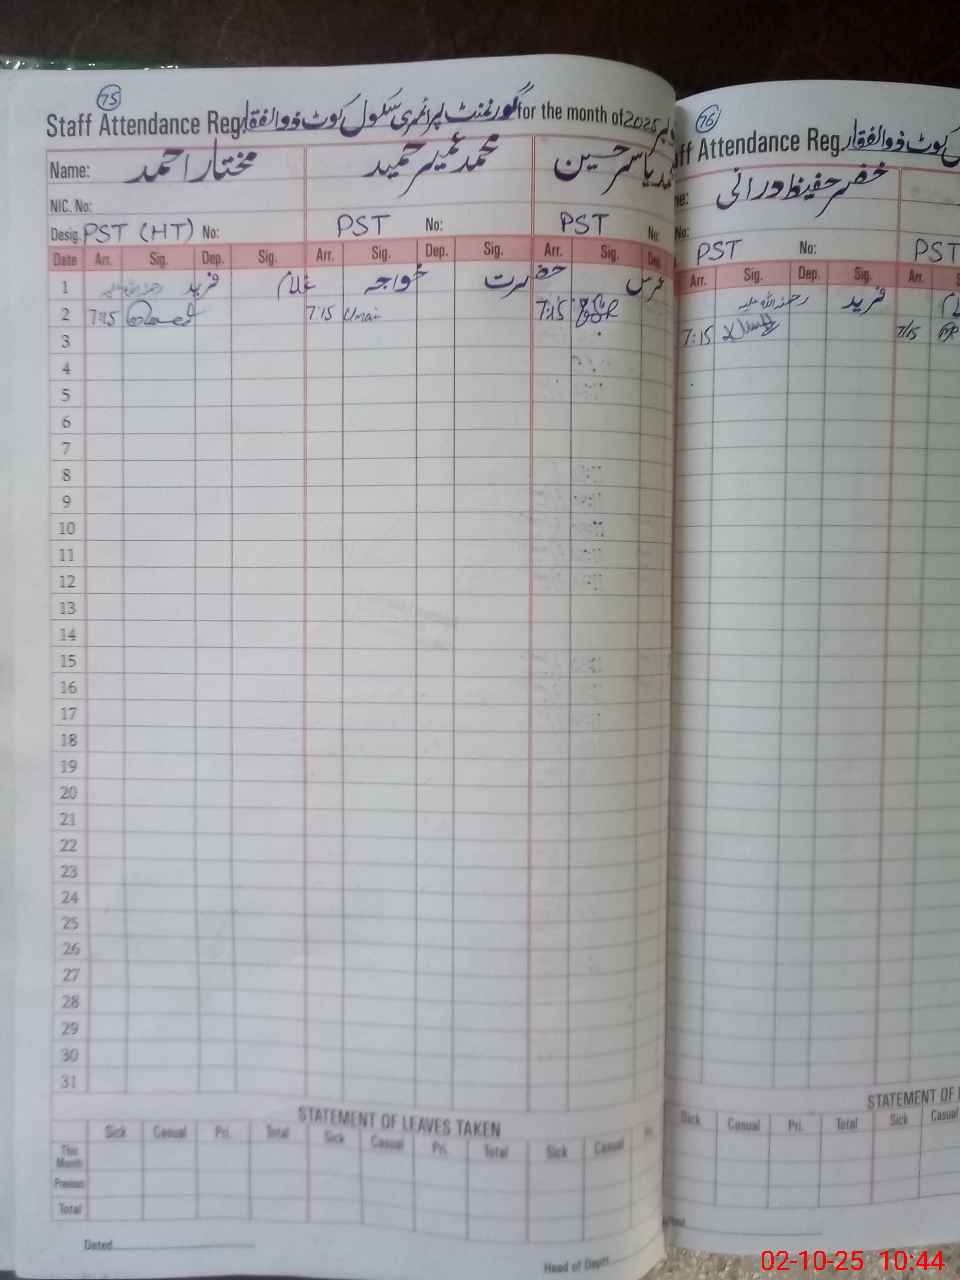 75
Staff Attendance Reg. گورنمنٹ پرائمری سکول کوٹ ذوالفقار for the month of 2025
Name: مختار احمد محمد عمیر حمید یاسر حسین
NIC. No:
Desig. PST (HT) No: PST No: PST No:
Date Arr. Sig. Dep. Sig. Arr. Sig. Dep. Sig. Arr. Sig. Dep.
1 عرس حضرت خواجہ غلام فرید
2 7:15 7:15 Umair 7:15
3
4
5
6
7
8
9
10
11
12
13
14
15
16
17
18
19
20
21
22
23
24
25
26
27
28
29
30
31
STATEMENT OF LEAVES TAKEN
Sick Casual Pri. Total Sick Casual Pri. Total Sick Casual Pri.
This Month
Previous
Total
Dated
Head of Deptt.
76
ff Attendance Reg. کوٹ ذوالفقار
me: خضر حفیظ درانی
No:
PST No: PST
Arr. Sig. Dep. Sig. Arr.
فرید رحمۃ اللہ علیہ
7:15 7:15
STATEMENT OF
Sick Casual Pri. Total Sick Casual
02-10-25 10:44